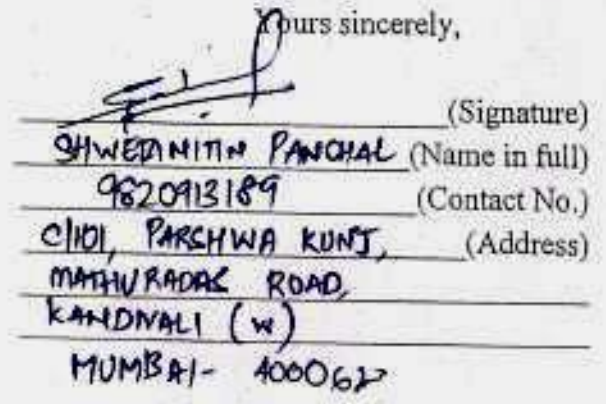 Yours sincerely,
(Signature)
SHWETA NITIN PANCHAL (Name in full)
9820913189 (Contact No.)
C/101, PARSHWA KUNJ, (Address)
MATHURADAS ROAD,
KANDIVALI (W)
MUMBAI- 400067